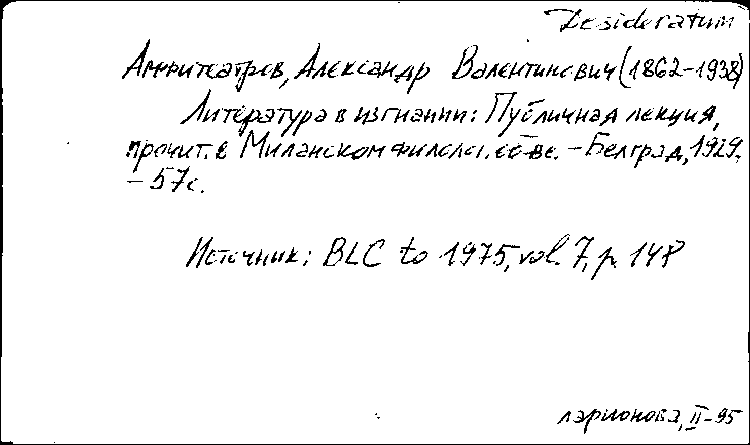 Desideratum
Амфитеатров, Александр Валентинович (1862-1938)
Литература в изгнании: Публичная лекция,
прочит. в Миланском филолог. об-ве. - Белград, 1929.
- 57с.
Источник: BLC to 1975, vol. 7, p. 148
Ларионова, II-95